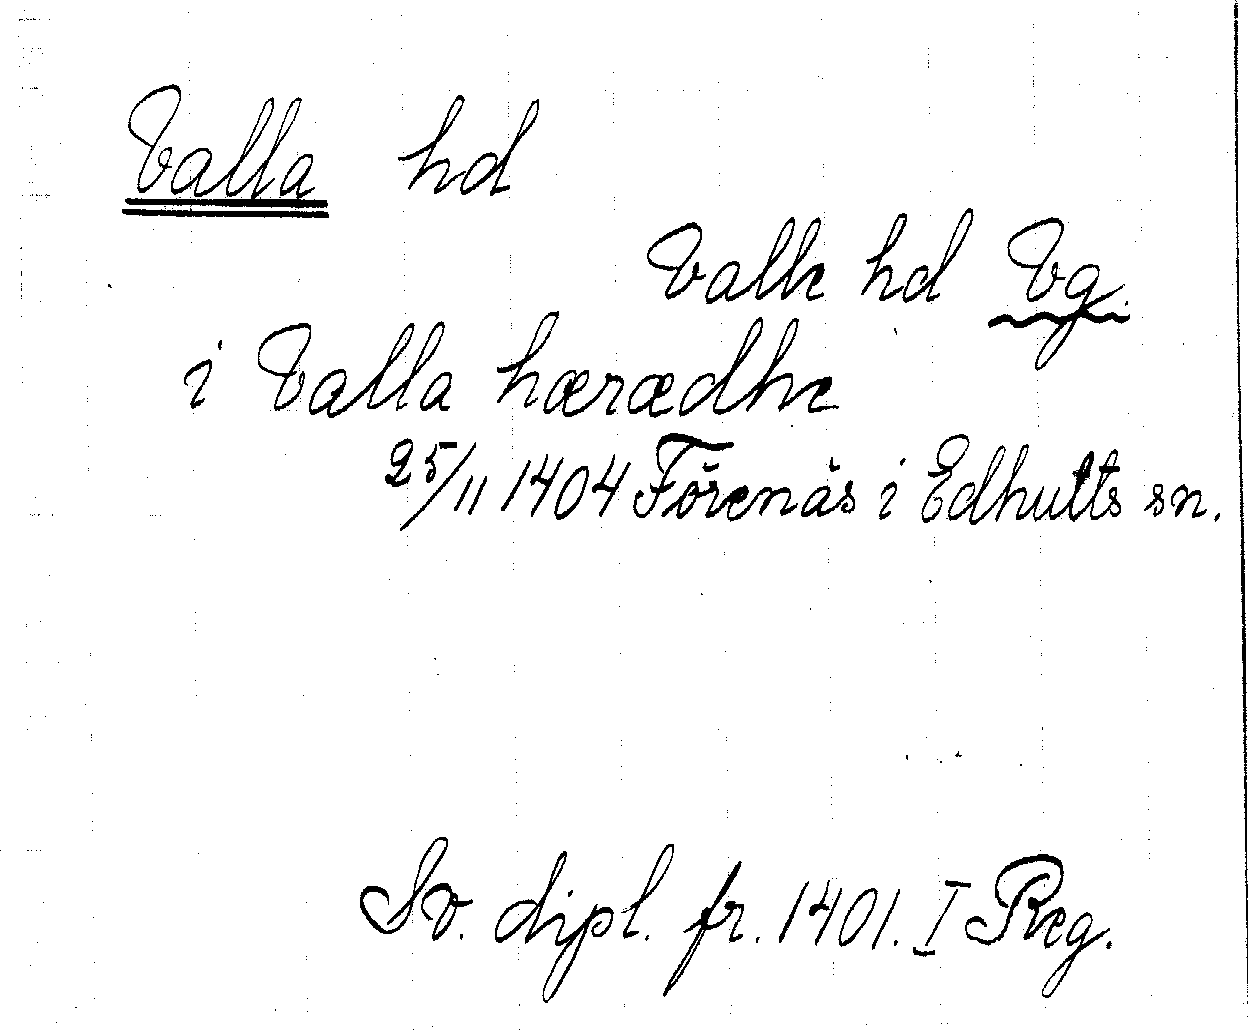 Valla hd
Valle hd Vg.
i Valla hærædhe
25/11 1404 Förenäs i Edhults sn.
Sv. dipl. fr. 1401. I Reg.